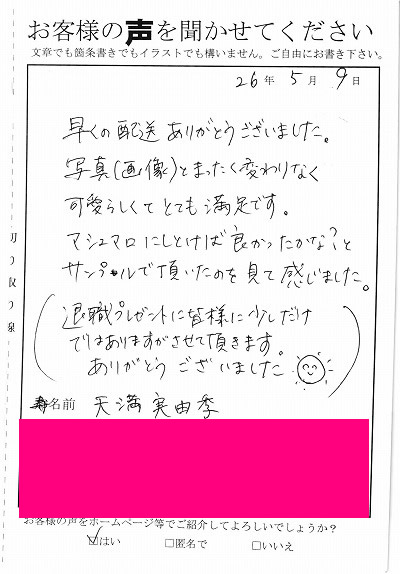 お客様の声を聞かせてください
文章でも箇条書きでもイラストでも構いません。ご自由にお書き下さい。
26年 5月 9日
早くの配送 ありがとうございました。
写真(画像)とまったく変わりなく
可愛らしくて とても 満足です。
マシュマロにしとけば 良かったかな?と
サンプルで 頂いたのを 見て 感じました。
(退職プレゼントに皆様に少しだけ
ではありますがさせて頂きます。
ありがとう ございました)
名前 天満 実由季
お客様の声をホームページ等でご紹介してよろしいでしょうか?
☑はい □匿名で □いいえ
切り取り線